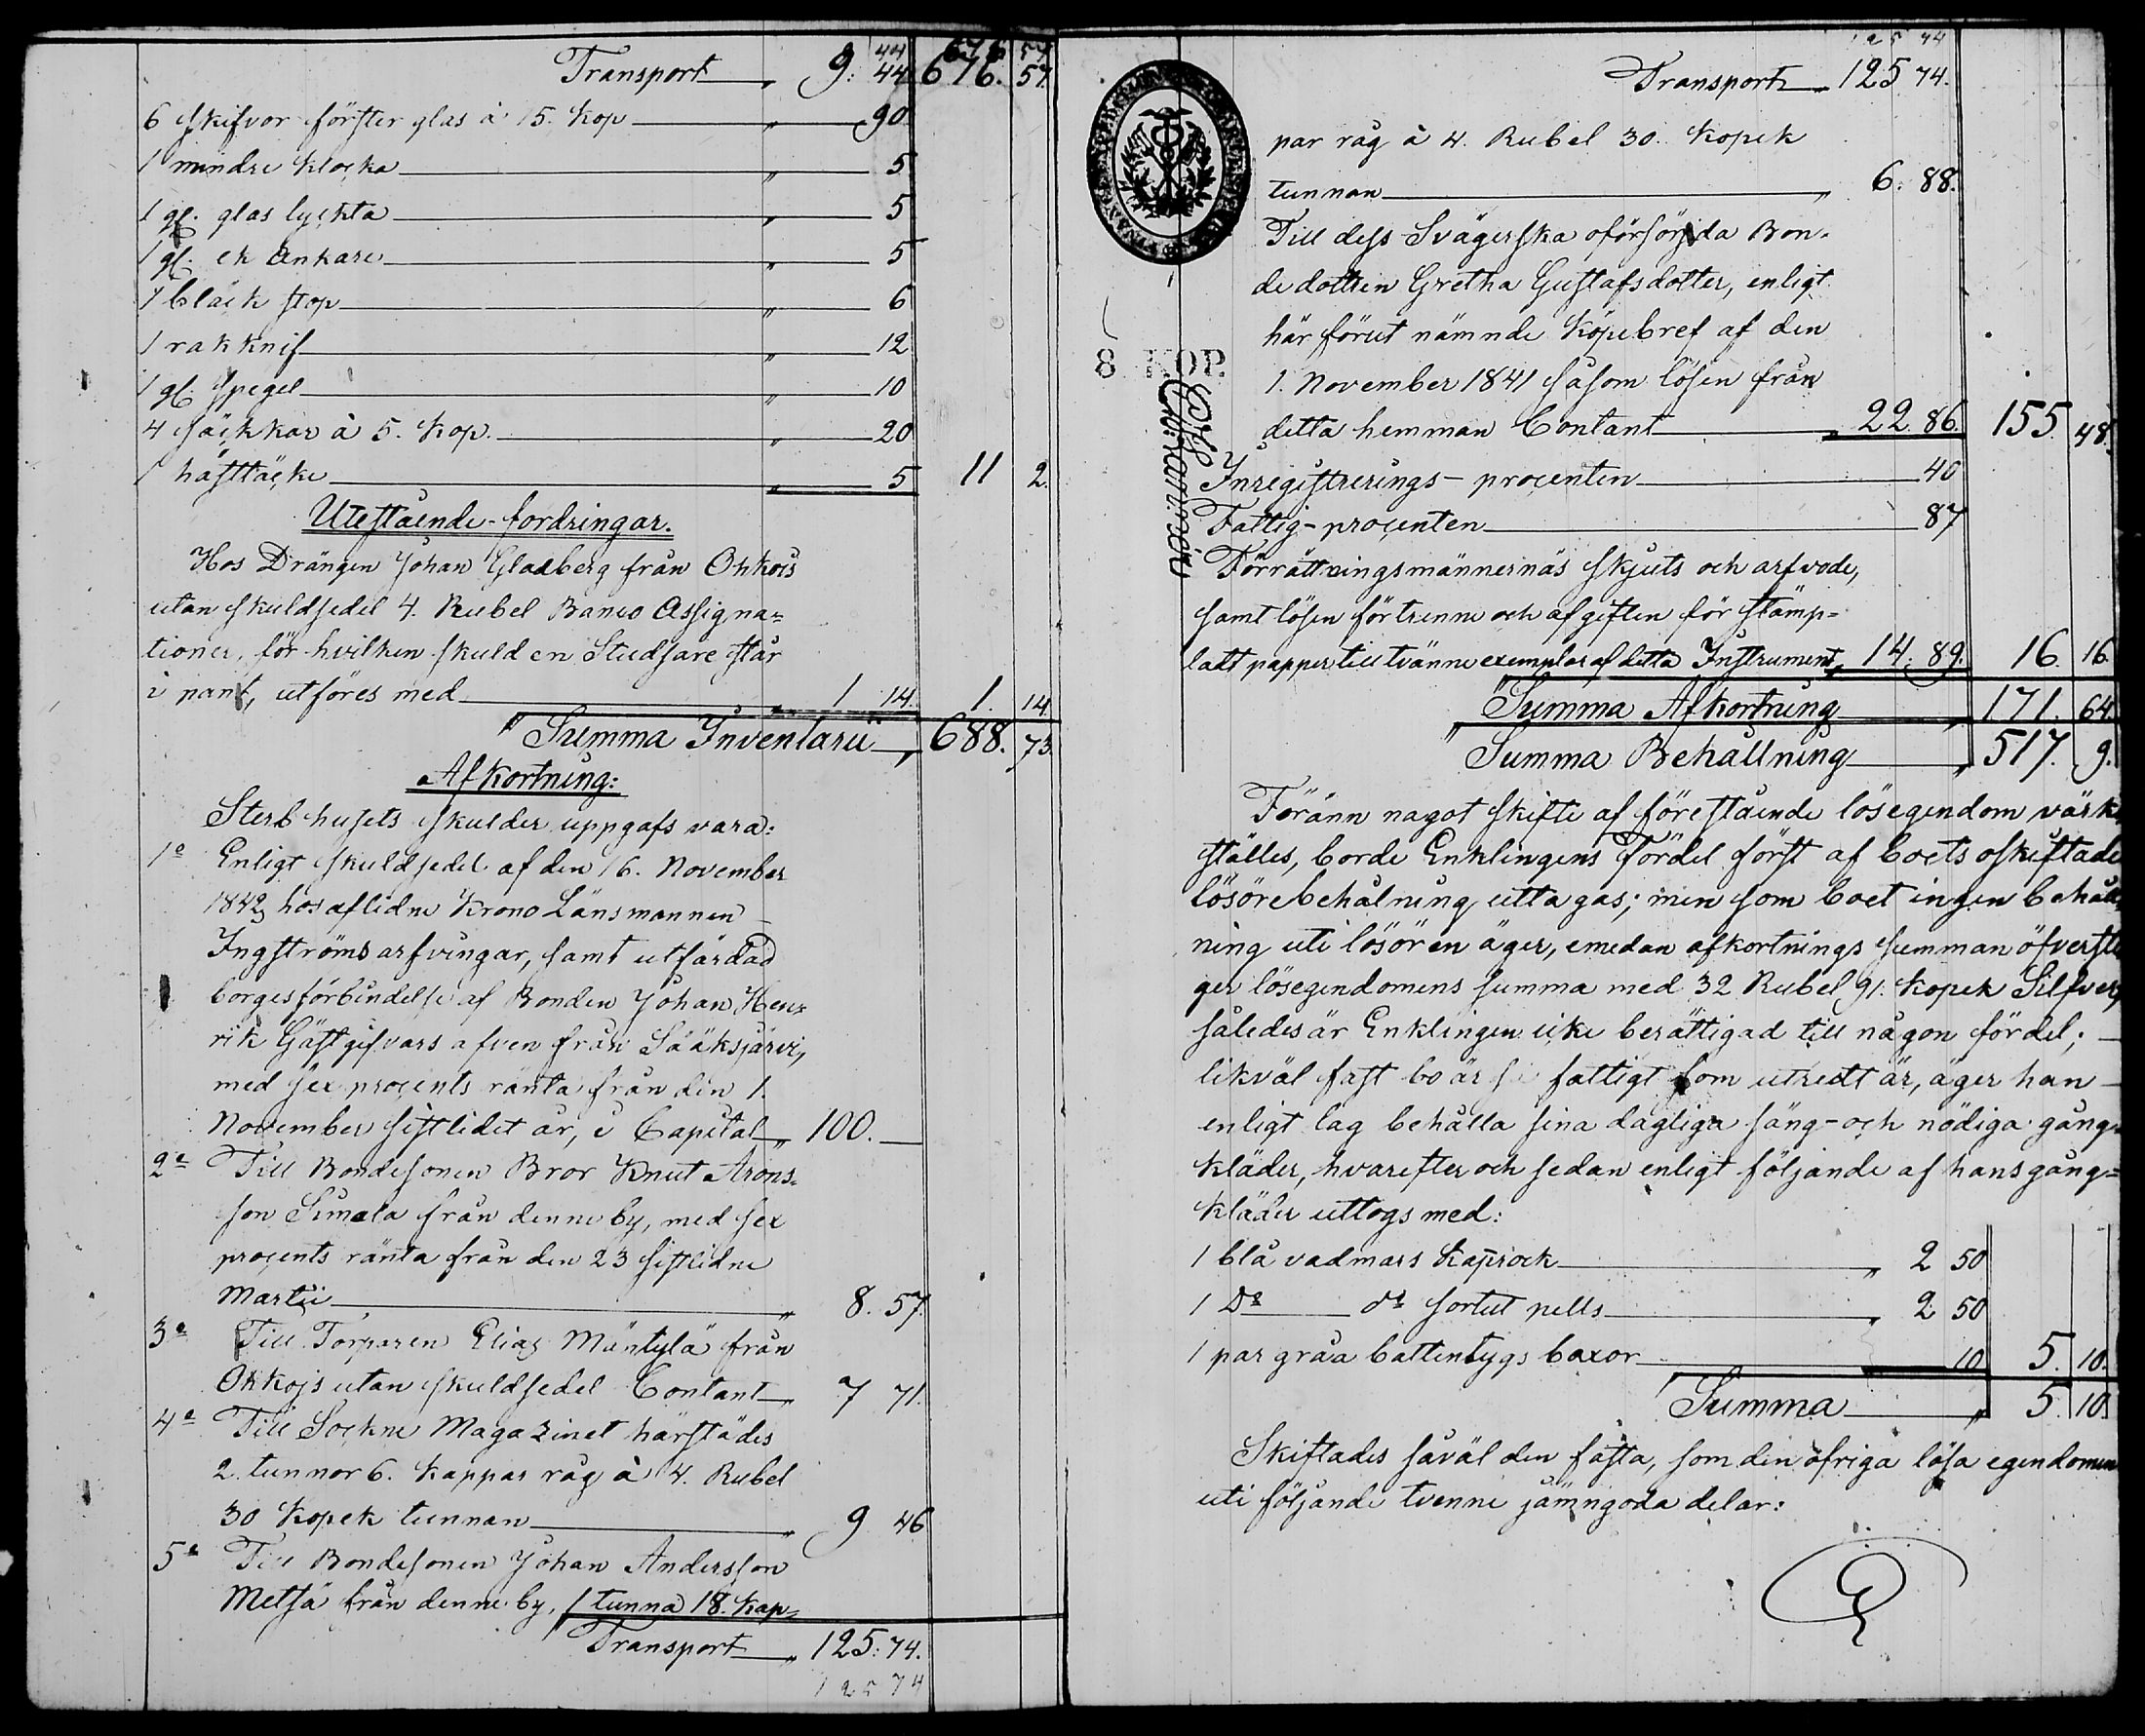 44 676 57
Transport „ 9: 44 676. 57.
6 skifvor förster glas à 15. Kop „ 90
1 mindre klocka „ 5
1 gl. glas lyckta „ 5
1 gl. ek Ankare „ 5
1 bläck stop „ 6
1 rakknif „ 12
1 gl. spegel „ 10
4 säckkar à 5. Kop. „ 20
1 hästtäcke „ 5 11 2.
Utestående-fordringar.
Hos Drängen Johan Gladberg från Ohkois
utan skuldsedel 4. Rubel Banco Assigna=
tioner, för hvilken skuld en Studsare står
i pant, utföres med „ 1 14. 1. 14
Summa Inventarii „ 688. 73
Afkortning:
Sterbhusets skulder uppgafs vara:
1o Enligt skuldsedel af den 16. November
1842, hos aflidne Krono Länsmannen
Ingströms arfvingar, samt utfärdad
borgesförbindelse af Bonden Johan Hen=
rik Gästgifvars afven från Sääksjärvi,
med sex procents ränta från den 1.
November sistlidet år, i Capital „ 100. —
2o Till Bondesonen Bror Knut Arons=
son Simola från denne by, med sex
procents ränta från den 23 sistlidne
Martii „ 8. 57.
3o Till Torparen Elias Mäntylä från
Okkojs utan skuldsedel Contant „ 7 71.
4o Till Sockne Magazinet härstädes
2. tunnor 6. Kappar råg à 4. Rubel
30 Kopek tunnan „ 9 46
5o Till Bondesonen Johan Andersson
Metsä från denne by, 1 tunna 18. Kap=
Transport „ 125: 74.
125 74
125 74
Transport „ 125 74.
par råg à 4. Rubel 30. Kopek
tunnan „ 6: 88.
Till dess Svägerska oförsörjda Bon=
dedottren Gretha Gustafsdotter, enligt
här förut nämnde Köpebref af den
8 KOP.
1. November 1841 såsom lösen från
detta hemman Contant „ 22 86. 155. 48.
Inregistrerings-procenten 40
Fattig-procenten 87
Förrättningsmännernäs skjuts och arfvode,
samt lösen för trenne och afgiften för stämp=
ladt papper till tvänne exemplar af detta Instrument „ 14: 89. 16. 16.
Summa Afkortning „ 171. 64
Summa Behållning „ 517. 9.
Föränn nagot skifte af förestående lösegendom värk
ställes, borde Enklingens Fördel först af boets oskiftade
lösörebehålning uttagas; men som boet ingen behåll
ning uti lösören äger, emedan afkortnings summan öfversti
ger lösegendomens summa med 32 Rubel 91. Kopek Silfver,
således är Enklingen icke berättigad till någon fördel; —
likväl fast bo är så fattigt som utredt är, äger han —
enligt lag behålla sina dagliga säng- och nödiga gång=
kläder, hvarefter och sedan enligt följande af hans gång=
kläder uttogs med:
1 blå vadmars kaprock „ 2 50
1 Do do sortut pells „ 2 50
1 par gråa battentygs boxor 10 5. 10.
Summa „ 5. 10.
Skiftades såväl den fasta, som den öfriga lösa egendomen
uti följande tvenne jämngoda delar: